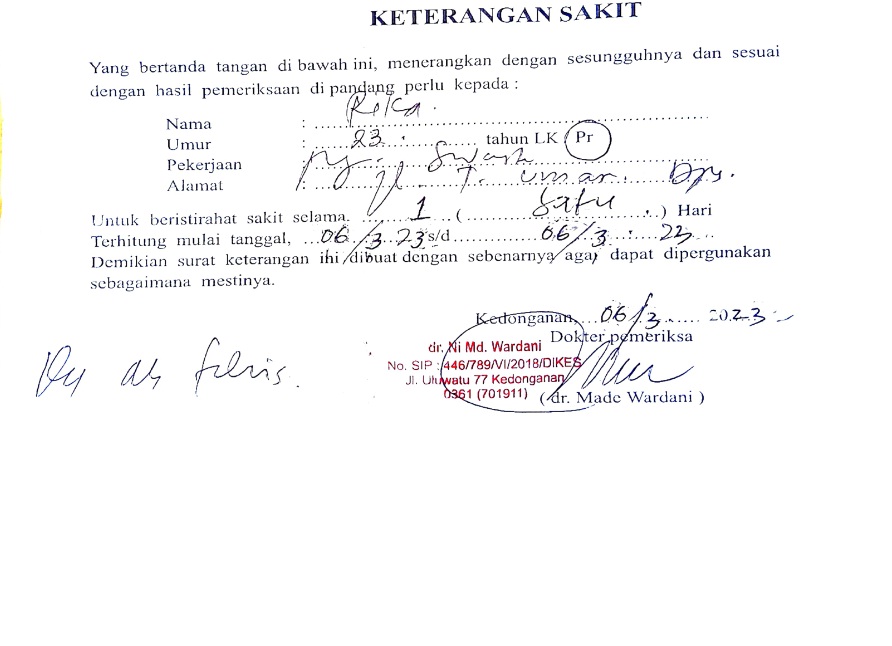 KETERANGAN SAKIT
Yang bertanda tangan di bawah ini, menerangkan dengan sesungguhnya dan sesuai
dengan hasil pemeriksaan di pandang perlu kepada :
Nama : Reka.
Umur : 23 tahun LK Pr
Pekerjaan : Swast
Alamat : Jl. T. Umar. Dps.
Untuk beristirahat sakit selama. 1 ( Satu ) Hari
Terhitung mulai tanggal, 06/3 23 s/d 06/3 23
Demikian surat keterangan ini dibuat dengan sebenarnya agar dapat dipergunakan
sebagaimana mestinya.
Kedonganan, 06/3 2023
Dokter pemeriksa
dr. Ni Md. Wardani
No. SIP : 446/789/VI/2018/DIKES
Jl. Uluwatu 77 Kedonganan
0361 (701911)
( dr. Made Wardani )
febris.